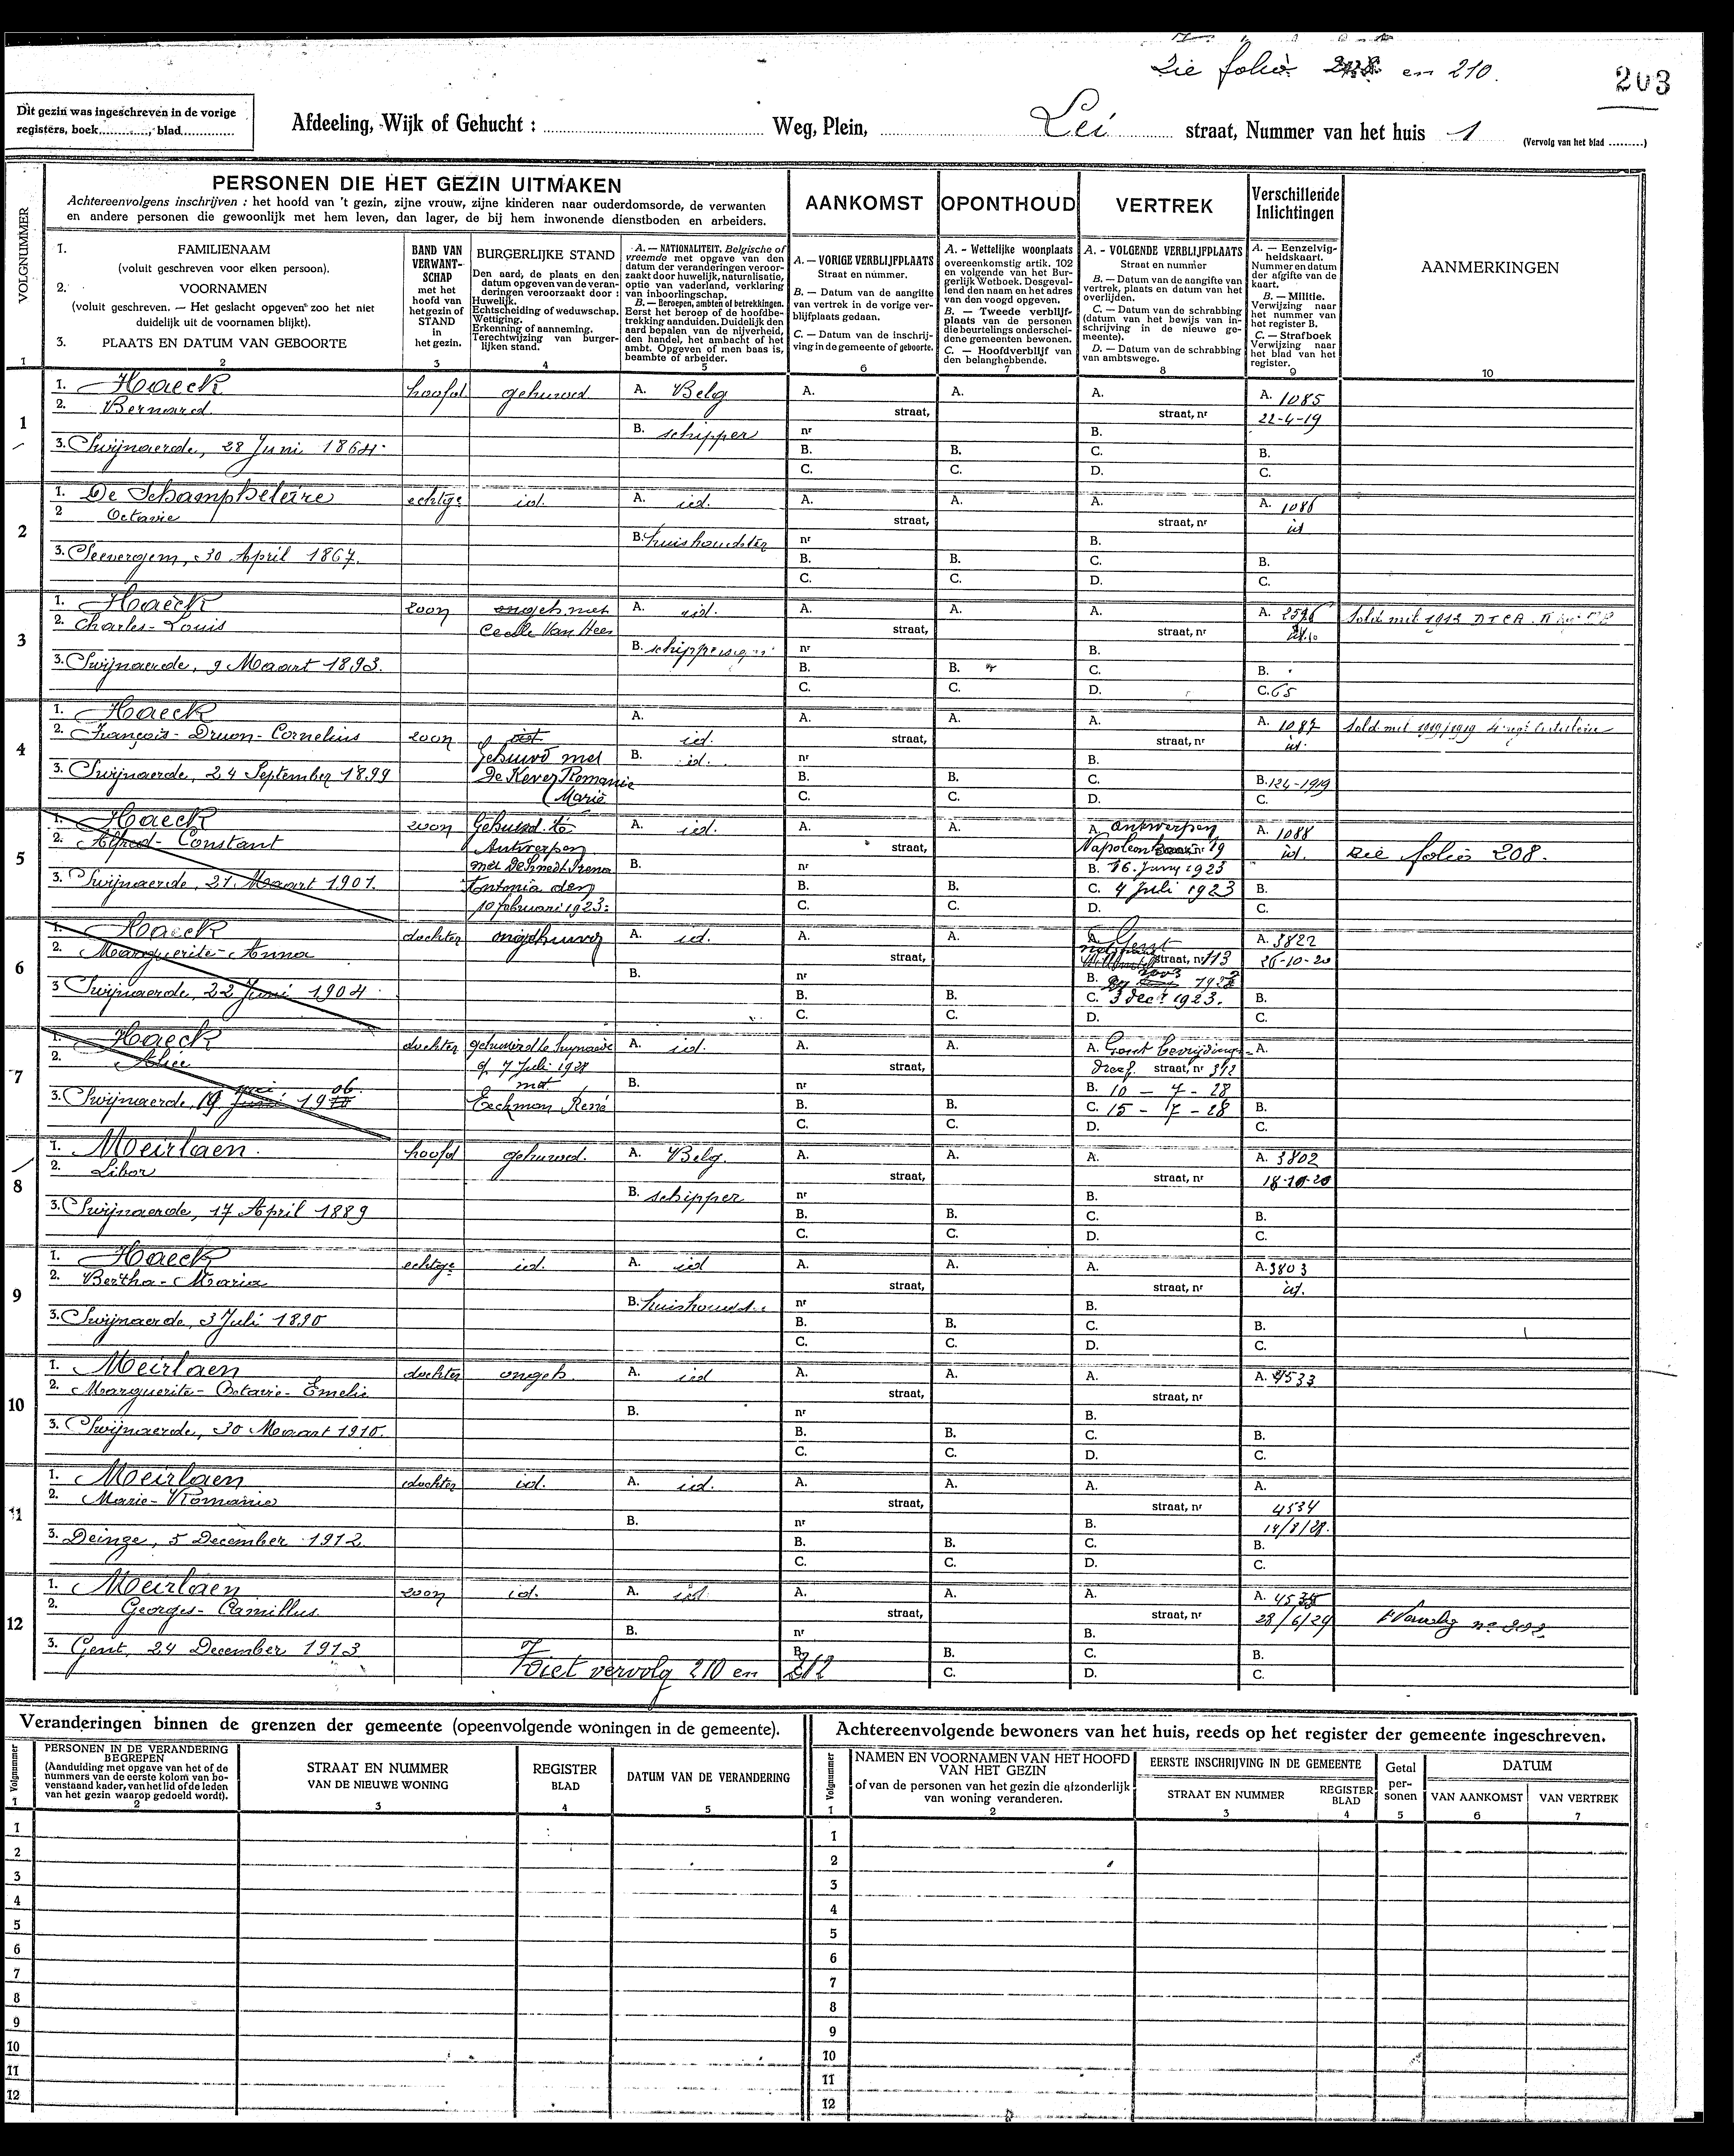 Zie folio en 210.
203
Dit gezin was ingeschreven in de vorige
registers, boek............, blad..............
Afdeeling, Wijk of Gehucht : Weg, Plein, Lei straat, Nummer van het huis 1
(Vervolg van het blad .........)
PERSONEN DIE HET GEZIN UITMAKEN
Achtereenvolgens inschrijven : het hoofd van 't gezin, zijne vrouw, zijne kinderen naar ouderdomsorde, de verwanten
en andere personen die gewoonlijk met hem leven, dan lager, de bij hem inwonende dienstboden en arbeiders.
AANKOMST
OPONTHOUD
VERTREK
Verschillende
Inlichtingen
VOLGNUMMER
1
1. FAMILIENAAM
(voluit geschreven voor elken persoon).
2. VOORNAMEN
(voluit geschreven. — Het geslacht opgeven zoo het niet
duidelijk uit de voornamen blijkt).
3. PLAATS EN DATUM VAN GEBOORTE
2
BAND VAN
VERWANT-
SCHAP
met het
hoofd van
het gezin of
STAND
in
het gezin.
3
BURGERLIJKE STAND
Den aard, de plaats en den
datum opgeven van de veran-
deringen veroorzaakt door :
Huwelijk.
Echtscheiding of weduwschap.
Wettiging.
Erkenning of aanneming.
Terechtwijzing van burger-
lijken stand.
4
A. — NATIONALITEIT. Belgische of
vreemde met opgave van den
datum der veranderingen veroor-
zaakt door huwelijk, naturalisatie,
optie van vaderland, verklaring
van inboorlingschap.
B. — Beroepen, ambten of betrekkingen.
Eerst het beroep of de hoofdbe-
trekking aanduiden. Duidelijk den
aard bepalen van de nijverheid,
den handel, het ambacht of het
ambt. Opgeven of men baas is,
beambte of arbeider.
5
A. — VORIGE VERBLIJFPLAATS
Straat en nummer.
B. — Datum van de aangifte
van vertrek in de vorige ver-
blijfplaats gedaan.
C. — Datum van de inschrij-
ving in de gemeente of geboorte.
6
A. - Wettelijke woonplaats
overeenkomstig artik. 102
en volgende van het Bur-
gerlijk Wetboek. Desgeval-
lend den naam en het adres
van den voogd opgeven.
B. — Tweede verblijf-
plaats van de personen
die beurtelings onderschei-
dene gemeenten bewonen.
C. — Hoofdverblijf van
den belanghebbende.
7
A. - VOLGENDE VERBLIJFPLAATS
Straat en nummer
B. — Datum van de aangifte van
vertrek, plaats en datum van het
overlijden.
C. — Datum van de schrabbing
(datum van het bewijs van in-
schrijving in de nieuwe ge-
meente).
D. — Datum van de schrabbing
van ambtswege.
8
A. — Eenzelvig-
heidskaart.
Nummer en datum
der afgifte van de
kaart.
B. — Militie.
Verwijzing naar
het nummer van
het register B.
C. — Strafboek
Verwijzing naar
het blad van het
register.
9
AANMERKINGEN
10
1
1. Haeck hoofd gehuwd A. Belg A. A. A. A. 1085
2. Bernard straat, straat, nr 22-4-19
B. schipper nr B.
3. Swijnaerde, 28 Juni 1864. B. B. C. B.
C. C. D. C.
2
1. De Schampheleire echtge id. A. id. A. A. A. A. 1086
2 Octavie straat, straat, nr id
B. huishoudster nr B.
3. Seevergem, 30 April 1867. B. B. C. B.
C. C. D. C.
3
1. Haeck zoon ongeh. met A. id. A. A. A. A.
2. Charles-Louis Cecile Van Hee straat, straat, nr
B. nr B.
3. Swijnaerde, 9 Maart 1893. B. B. C. B.
C. C. D. C. 65
4
1. Haeck A. A. A. A. A. 1087
2. François-Druon-Cornelius zoon id. id. straat, straat, nr id.
gehuwd met B. id. nr B.
3. Swijnaerde, 24 September 1899 De Kever Romanie B. B. C. B. 124-1919
(Marie C. C. D. C.
5
1. Haeck zoon Gehuwd te A. id. A. A. A. Antwerpen A. 1088
2. Alfred-Constant Antwerpen straat, Napoleon straat, nr 19 id. Zie folio 208.
met De Smedt Irena B. nr B. 16. Juny 1923
3. Swijnaerde, 21 Maart 1901. Antonia den B. B. C. 4 Juli 1923 B.
10 februari 1923. C. C. D. C.
6
1. Haeck dochter ongehuwd A. id. A. A. A. Gent A. 3822
2. Marguerite-Anna straat, straat, nr 113 26-10-20
B. nr B.
3 Swijnaerde, 22 Juni 1904. B. B. C. 3 decr 1923. B.
C. C. D. C.
7
1. Haeck dochter A. id. A. A. A. Gent bevrijdings- A.
2. Alice 7 Juli 1928 straat, dreef. straat, nr 312
met B. nr B. 10 - 7 - 28
3. Swijnaerde, 19 Juni 19 06 Eeckman René B. B. C. 15 - 7 - 28 B.
C. C. D. C.
8
1. Meirlaen hoofd gehuwd. A. Belg. A. A. A. A. 3802
2. Libor straat, straat, nr 18-10-20
B. schipper nr B.
3. Swijnaerde, 17 April 1889 B. B. C. B.
C. C. D. C.
9
1. Haeck echtge id. A. id A. A. A. A. 3803
2. Bertha-Maria straat, straat, nr id.
B. nr B.
3. Swijnaerde, 3 Juli 1890 B. B. C. B.
C. C. D. C.
10
1. Meirlaen dochter ongeh. A. id A. A. A. A. 4533
2. Marguerite-Octavie-Emelie straat, straat, nr
B. nr B.
3. Swijnaerde, 30 Maart 1910. B. B. C. B.
C. C. D. C.
11
1. Meirlaen dochter id. A. id. A. A. A. A.
2. Marie-Romanie straat, straat, nr 4534
B. nr B. 14/8/28.
3. Deinze, 5 December 1912 B. B. C. B.
C. C. D. C.
12
1. Meirlaen zoon id. A. id. A. A. A. A. 4535
2. Georges-Camillus straat, straat, nr 28/6/29
B. nr B.
3. Gent, 24 December 1913 B. B. C. B.
Ziet vervolg 210 en 212 C. C. D. C.
Veranderingen binnen de grenzen der gemeente (opeenvolgende woningen in de gemeente).
Volgnummer
1
PERSONEN IN DE VERANDERING
BEGREPEN
(Aanduiding met opgave van het of de
nummers van de eerste kolom van bo-
venstaand kader, van het lid of de leden
van het gezin waarop gedoeld wordt).
2
STRAAT EN NUMMER
VAN DE NIEUWE WONING
3
REGISTER
BLAD
4
DATUM VAN DE VERANDERING
5
1
2
3
4
5
6
7
8
9
10
11
12
Achtereenvolgende bewoners van het huis, reeds op het register der gemeente ingeschreven.
Volgnummer
1
NAMEN EN VOORNAMEN VAN HET HOOFD
VAN HET GEZIN
of van de personen van het gezin die afzonderlijk
van woning veranderen.
2
EERSTE INSCHRIJVING IN DE GEMEENTE
STRAAT EN NUMMER
3
REGISTER
BLAD
4
Getal
per-
sonen
5
DATUM
VAN AANKOMST
6
VAN VERTREK
7
1
2
3
4
5
6
7
8
9
10
11
12